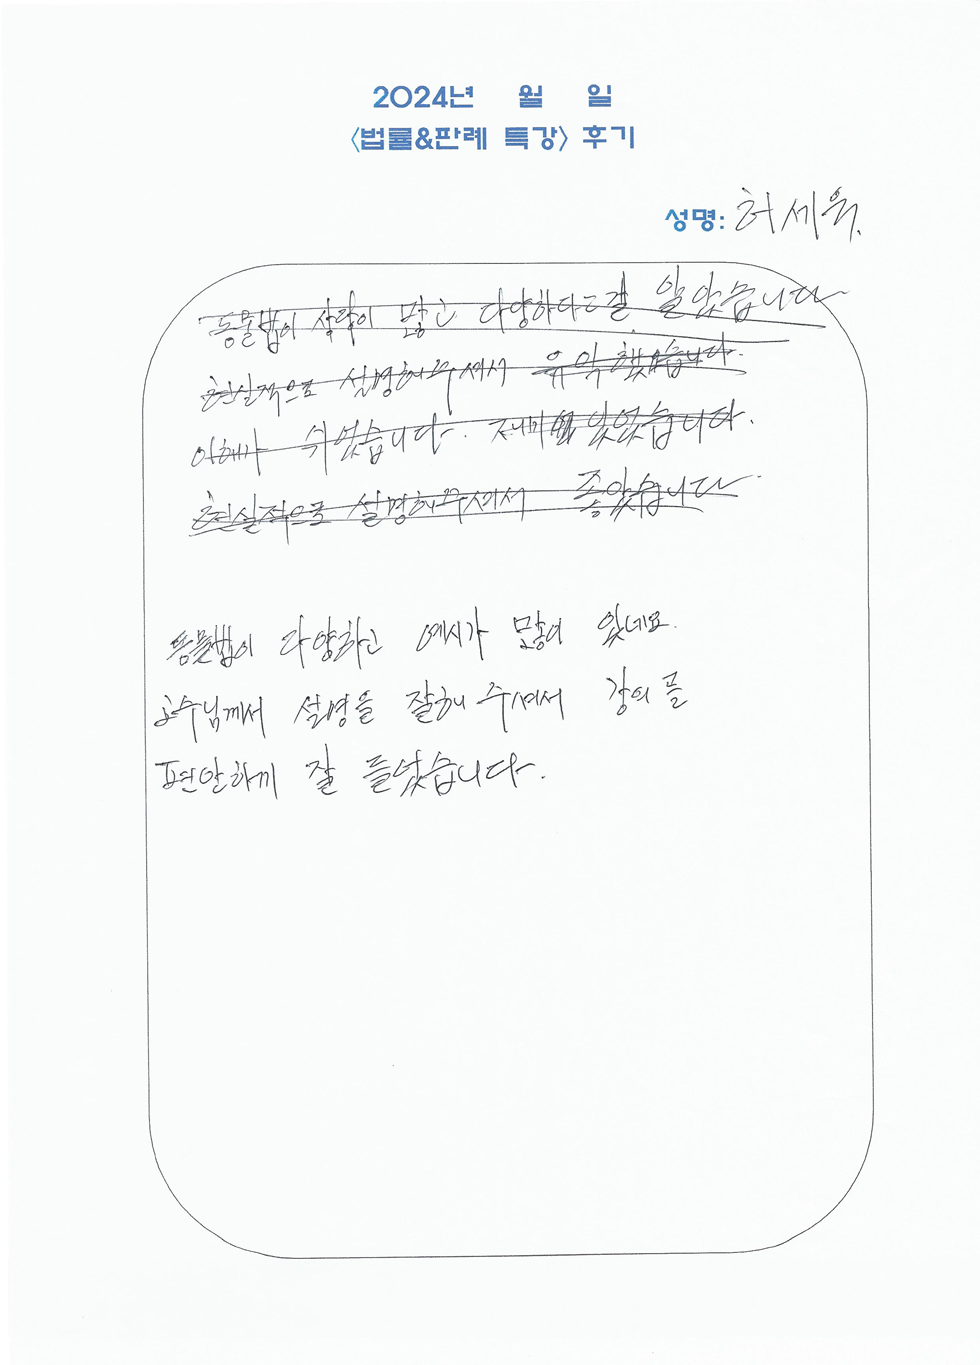 2024년 월 일
<법률&판례 특강> 후기
성명: 허세욱.
동물법이 상당이 많고 다양하다는걸 알았습니다
현실적으로 설명해주셔서 유익했습니다.
이해가 쉬웠습니다. 재미 있었습니다.
현실적으로 설명해주셔서 좋았습니다.
동물법이 다양하고 예시가 많이 있네요.
교수님께서 설명을 잘해 주셔서 강의를
편안하게 잘 들었습니다.